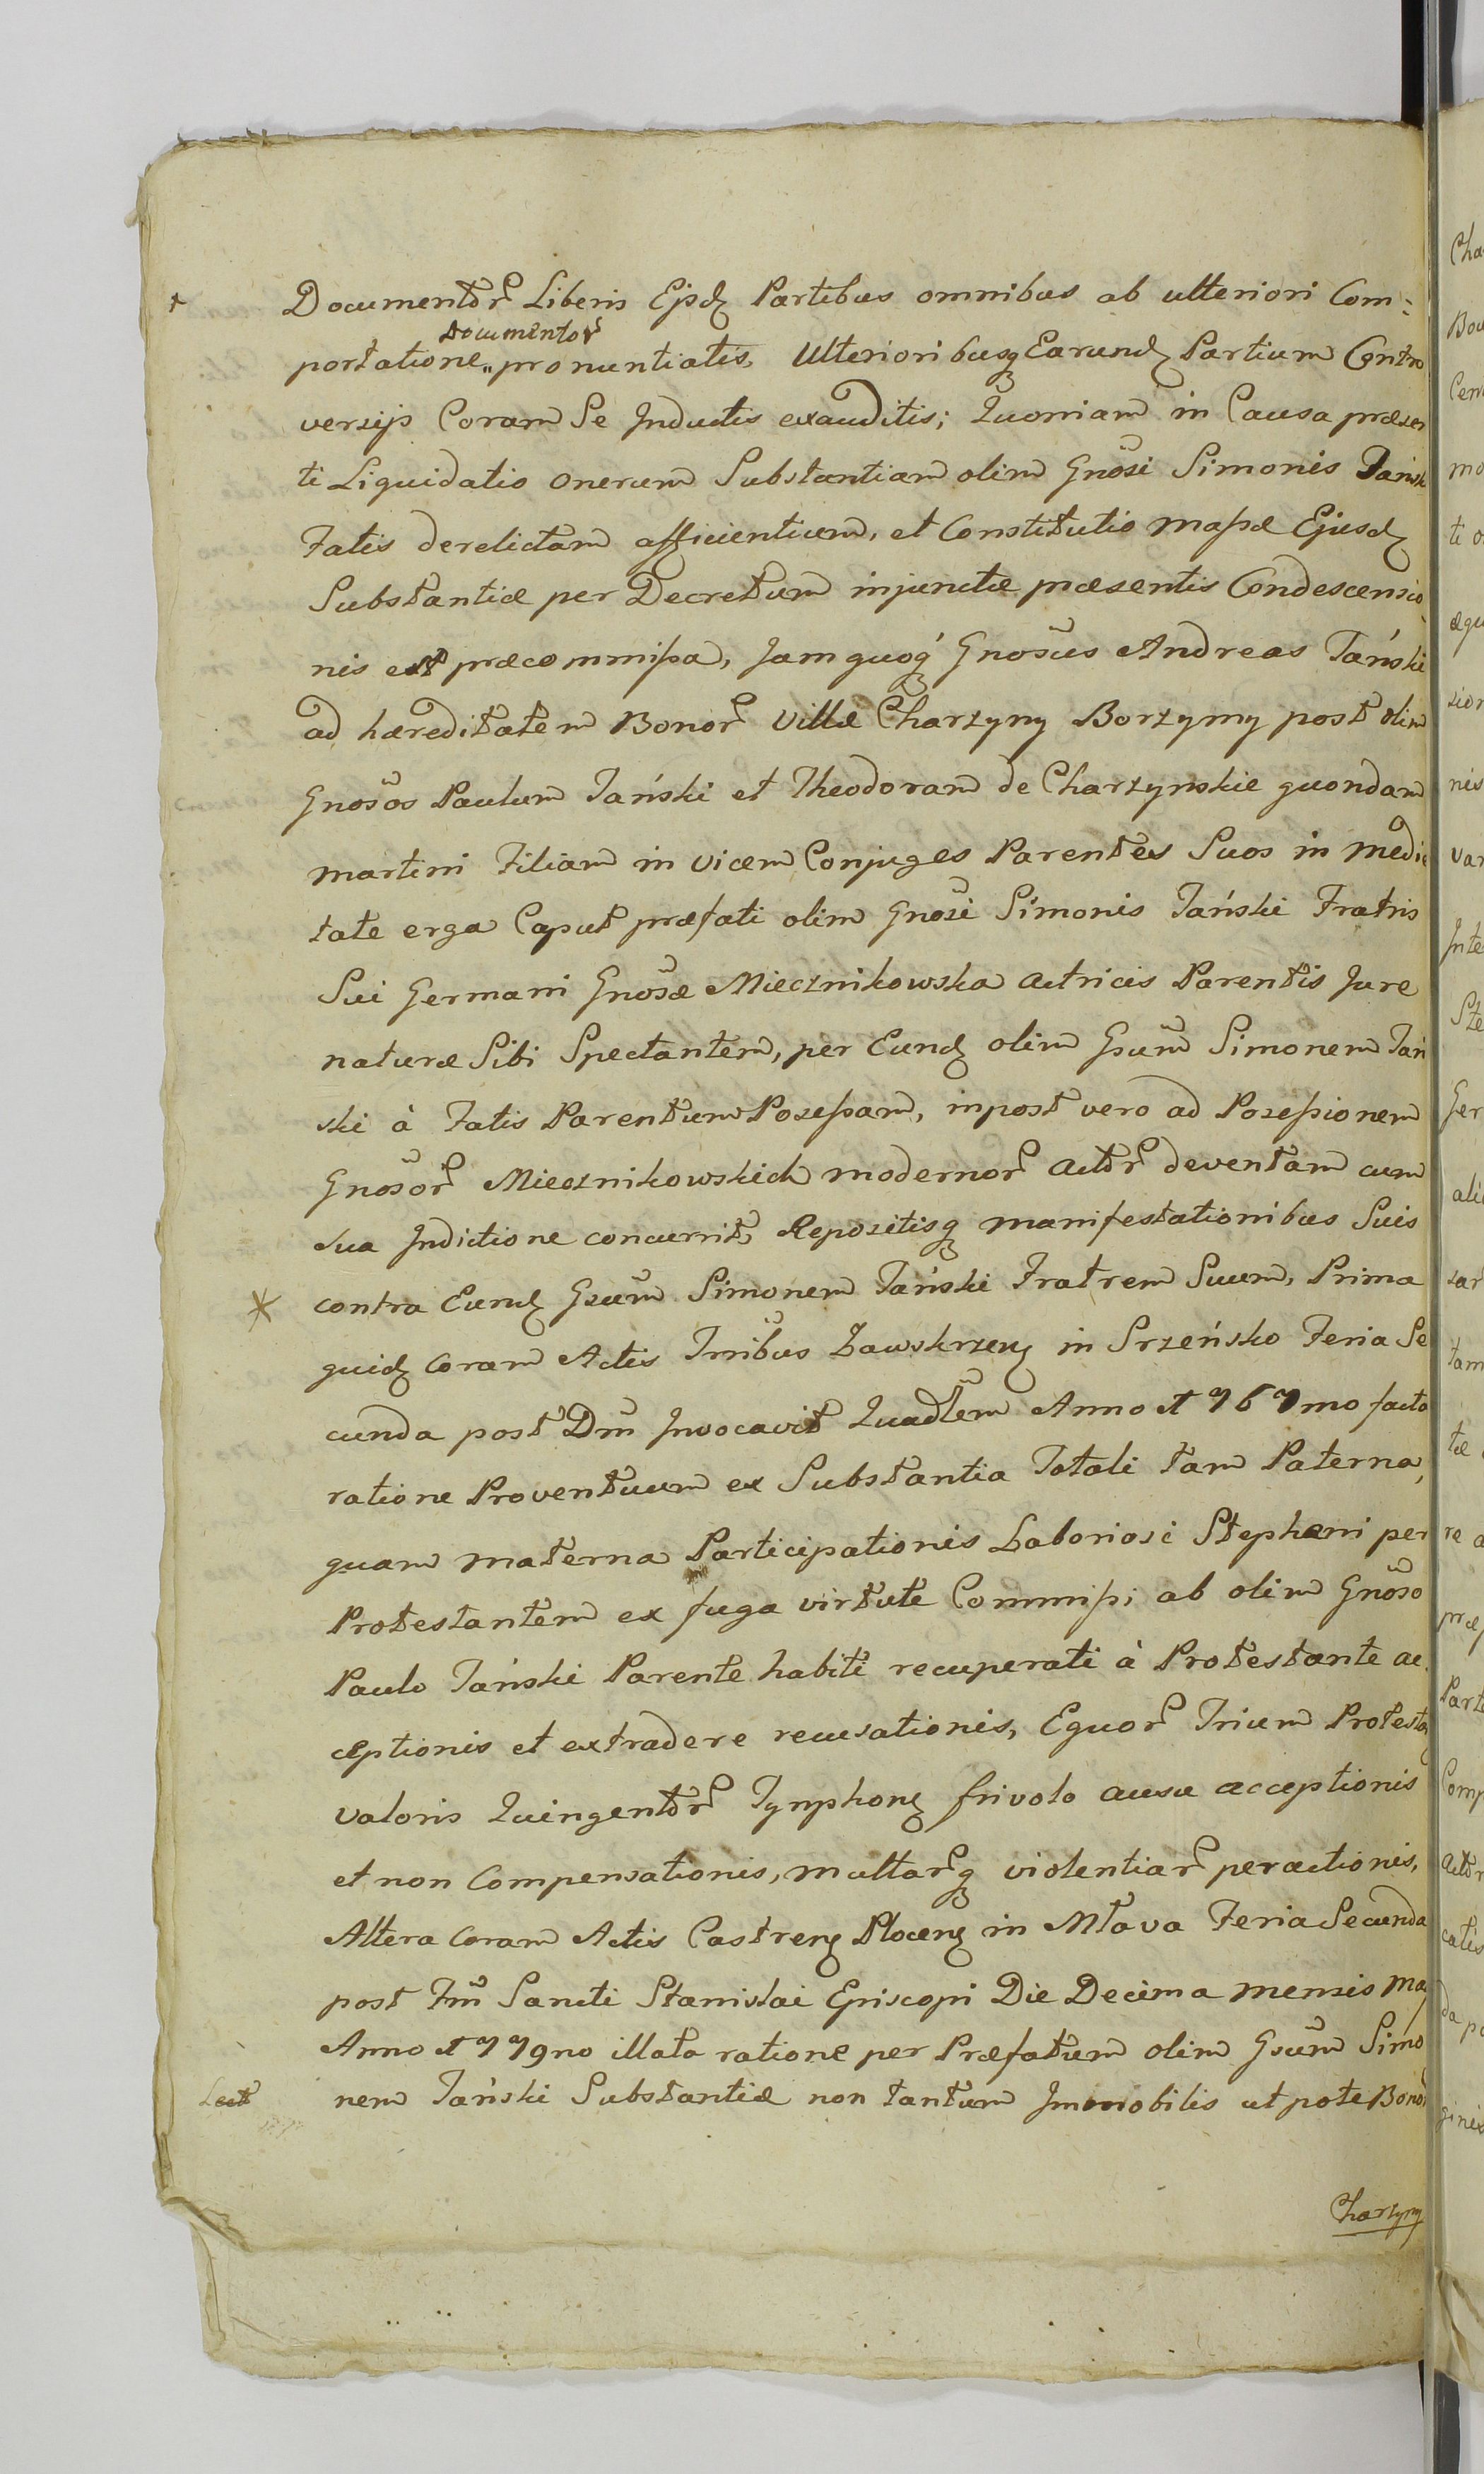 Documentor̃ Liberis Ejsdʒ Partibus omnibus ab ulteriori Com-
Documentor̃
portatione„ pronuntiatis, Ulterioribusqʒ Earundʒ Partium Contro
versijs Coram Se Inductis exauditis; Quoniam in Causa præsen
ti Liquidatio onerum Substantiam olim Gnosi Simonis Tańsk
Fatis derelictam afficientium, et Constitutio massæ Ejusdʒ
Substantiæ per Decretum injunctæ præsentis Condescensio
nis est præcommissa, Jam quoqʒ Gnosus Andreas Tański
ad hæreditatem Bonor̃ Villæ Charzyny Borzymy post olim
Gnosos Paulum Tański et Theodoram de Charzynskie quondam
Martini Filiam in vicem Conjuges Parentes Suos in Medie
tate erga Caput præfati olim Gnosi Simonis Tański Fratris
Sui Germani Gnosæ Miecznikowska Actricis Parentis Jure
naturæ Sibi Spectantem, per Eundʒ olim Gsum Simonem Tań
ski à Fatis Parentum Possessam, inpost vero ad Possessionem
Gnosor̃ Miecznikowskich modernor̃ Actor̃ deventam cum
sua Indictione concurrit, Repositisqʒ manifestationibus Suis
contra Eundʒ Gsum Simonem Tański Fratrem Suum, Prima
quidʒ coram Actis Trribus Zawskrzenʒ in Srzeńsko Feria Se
cunda post Dm̃ Invocavit Quadlem Anno 1767mo facta
ratione Proventuum ex Substantia Totali tam Paterna,
quam materna Participationis Laboriosi Stephani per
Protestantem ex fuga virtute Commissi ab olim Gnoso
Paulo Tański Parente habiti recuperati à Protestante ac
ceptionis et extradere recusationis, Equor̃ Trium Protestan
valoris Quingentor̃ Tynphonʒ frivolo ausu acceptionis
et non Compensationis, multar̃qʒ violentiar̃ peractionis,
Altera coram Actis Castrenʒ Plocenʒ in Mława Feria Secunda
post Fm̃ Sancti Stanislai Episcopi Die Decima mensis Maj
Anno 1779no illata ratione per Præfatum olim Gsum Simo
nem Tański Substantiæ non tantum Immobilis utpote Bonor̃
Lect
Charzyny